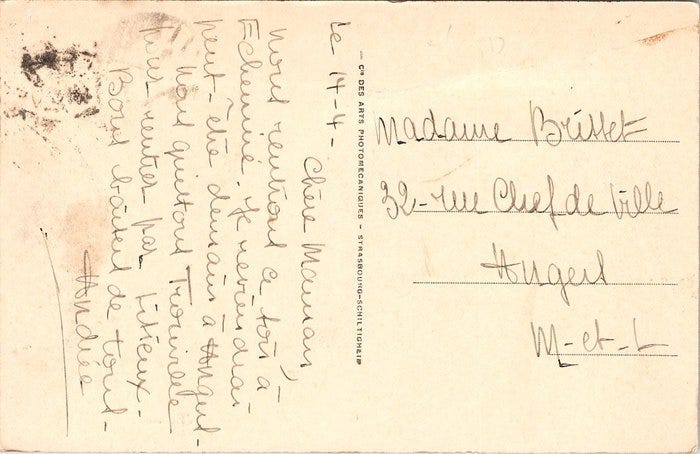 le 14-4-
Chère Maman,
Nous rentrons ce soir à
Echeminé. Je reviendrai
peut-être demain à Angers-
Nous quittons Trouville
pour rentrer par Lisieux-
Bons baisers de tous-
Andrée
Cie DES ARTS PHOTOMECANIQUES - STRASBOURG-SCHILTIGHEIM
Madame Brisset
32-rue Chef de Ville
Angers
M-et-L